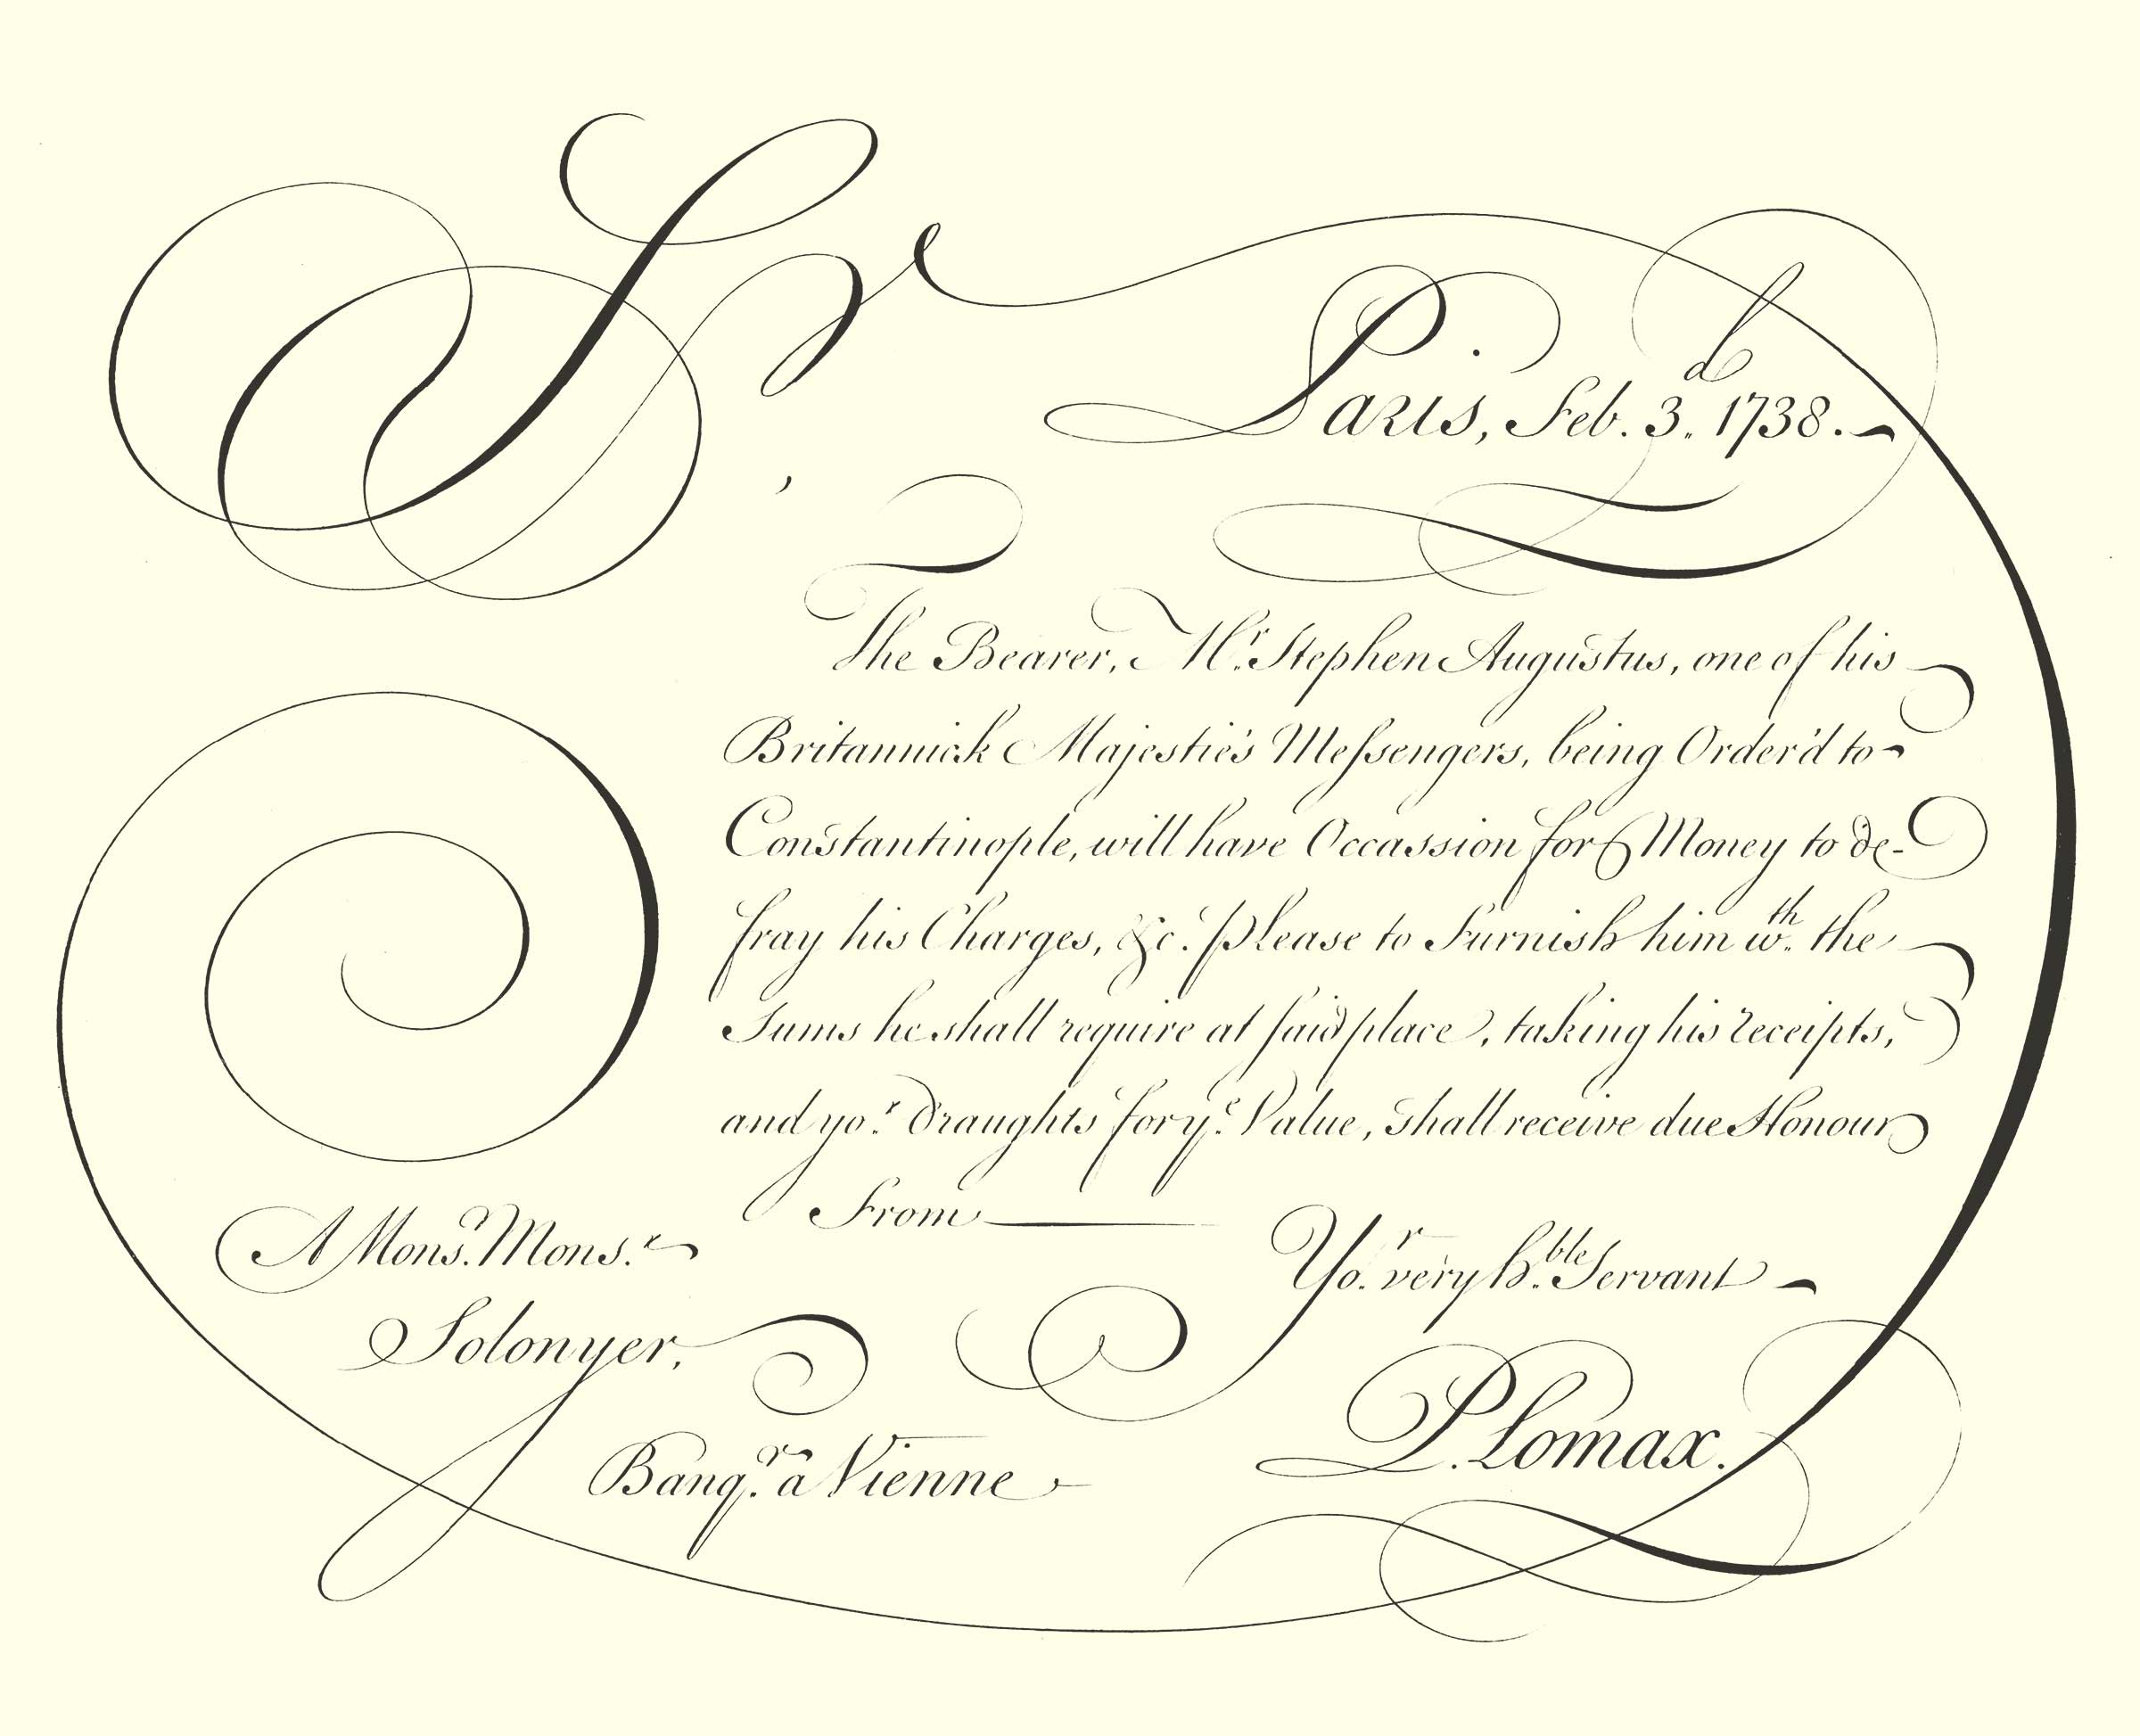 Sr,
Paris, Feb. 3d. 1738.
The Bearer, Mr. Stephen Augustus, one of his
Britannick Majestie's Meſsengers, being Order'd to
Constantinople, will have Occassion for Money to de-
fray his Charges, &c. please to Furnish him wth. the
Sums he shall require at said place, taking his receipts,
and yor. Draughts for ye. Value, shall receive due Honour
From
Yor. very h.ble Servant
P. Lomax.
A Monsr. Monsr.
Solonyer,
Banqr. à Vienne